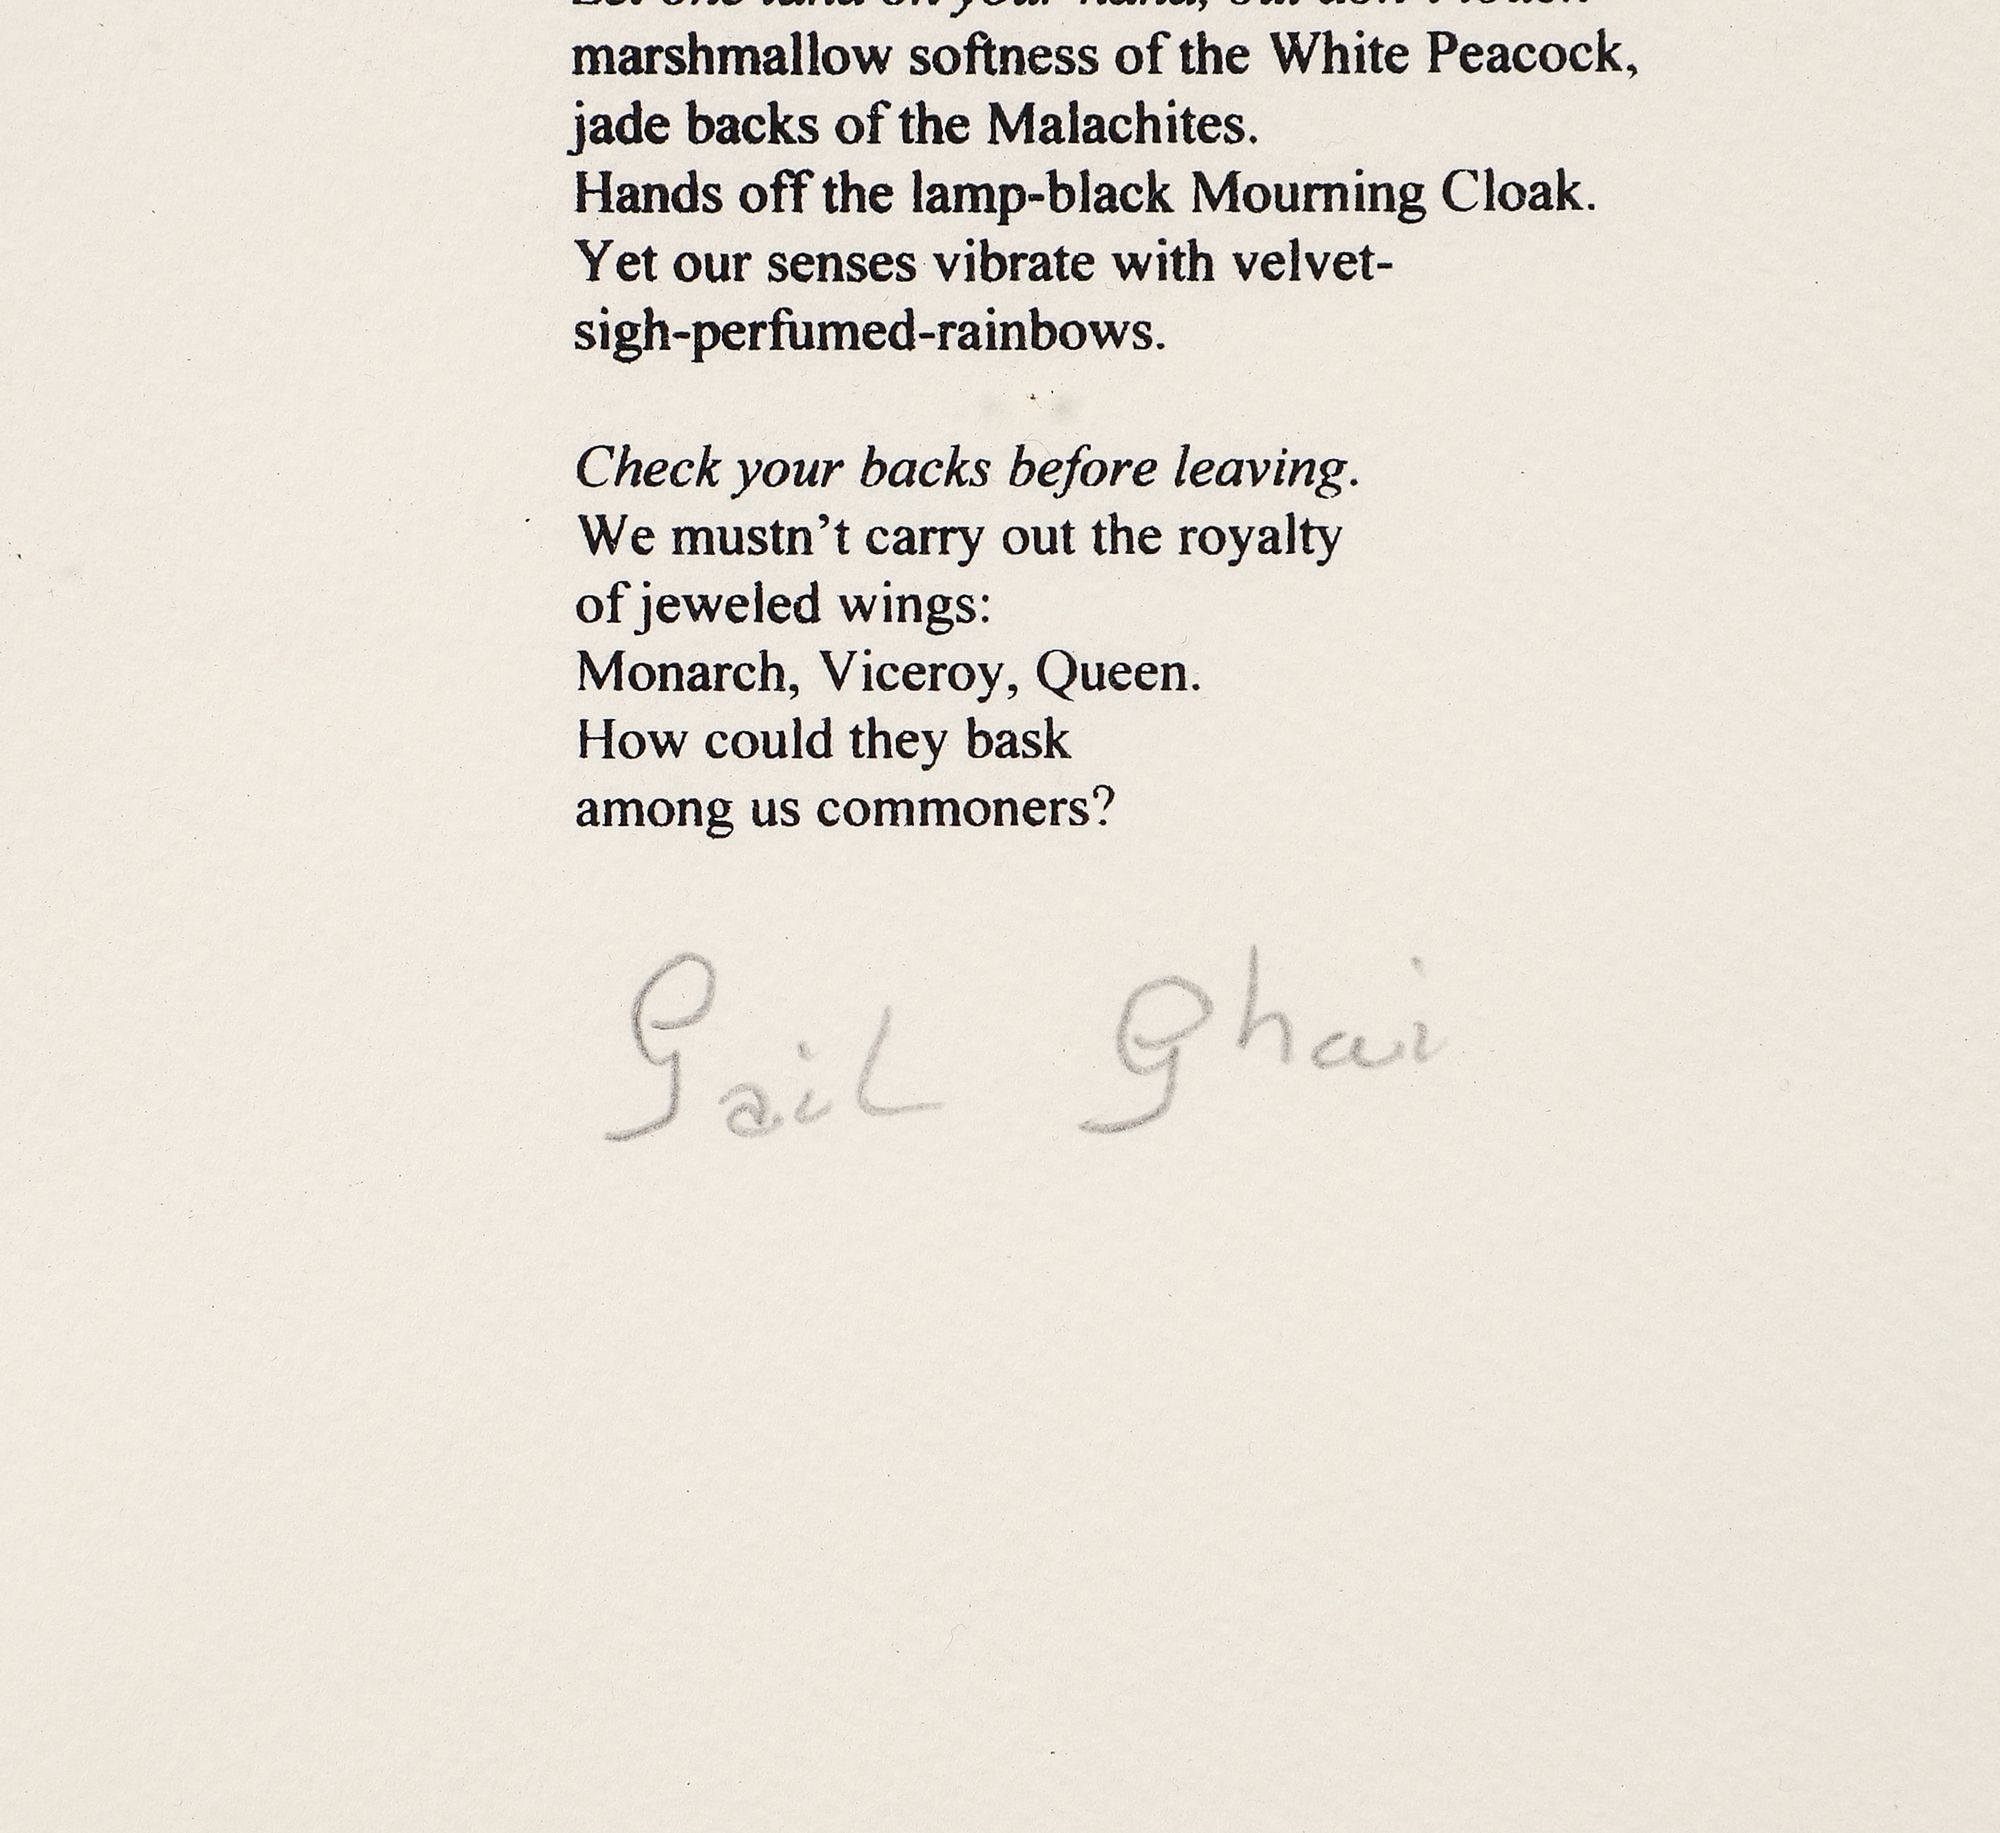 Let one land on your hand, but don't touch
marshmallow softness of the White Peacock,
jade backs of the Malachites.
Hands off the lamp-black Mourning Cloak.
Yet our senses vibrate with velvet-
sigh-perfumed-rainbows.
Check your backs before leaving.
We mustn’t carry out the royalty
of jeweled wings:
Monarch, Viceroy, Queen.
How could they bask
among us commoners?
Gail Ghai